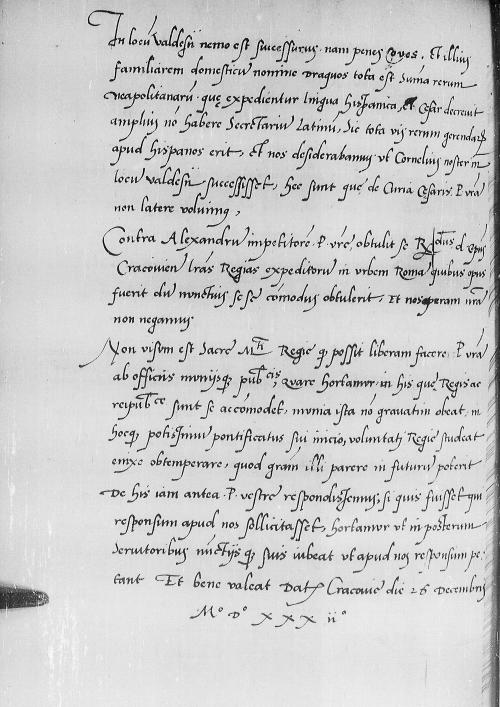 In locu Valdesii nemo est successurus, nam penes Covos, et illius
familiarem domesticu nomine Draguos tota est suma rerum
neapolitanaru que expedientur lingua hispanica, et Cesar decrevit
amplius no habere Secretariu latinu, sic tota vis rerum gerendaru
apud hispanos erit, et nos desiderabamus ut Cornelius noster in
locu Valdesii successisset, hec sunt que de Curia Cesaris P. vra
non latere voluimq,
Contra Alexandru impetitore P. vre obtulit se Rdus d. Epus
Cracovien lras Regias expeditoru in urbem Roma quibus opus
fuerit du nunctius se se comodus obtulerit, Et nos operam nra
non negamus
Non visum est Sacre Mti Regie q possit liberam facere P. vra
ab officiis muniisq pubcis, quare hortamur in his que Regis ac
reipubce sunt se accomodet, munia ista no gravatim obeat, in
hocq potissimu pontificatus sui inicio, voluntati Regie studeat
enixe obtemperare, quod gram illi parere in futuru poterit
De his iam antea P. vestre respondissemus, si quis fuisset qui
responsum apud nos sollicitasset, hortamur ut in posterum
servitoribus nuctiisq suis iubeat ut apud nos responsum pe-
tant Et bene valeat Dat Cracovie die 26 Decembris
Mo Do XXX iio